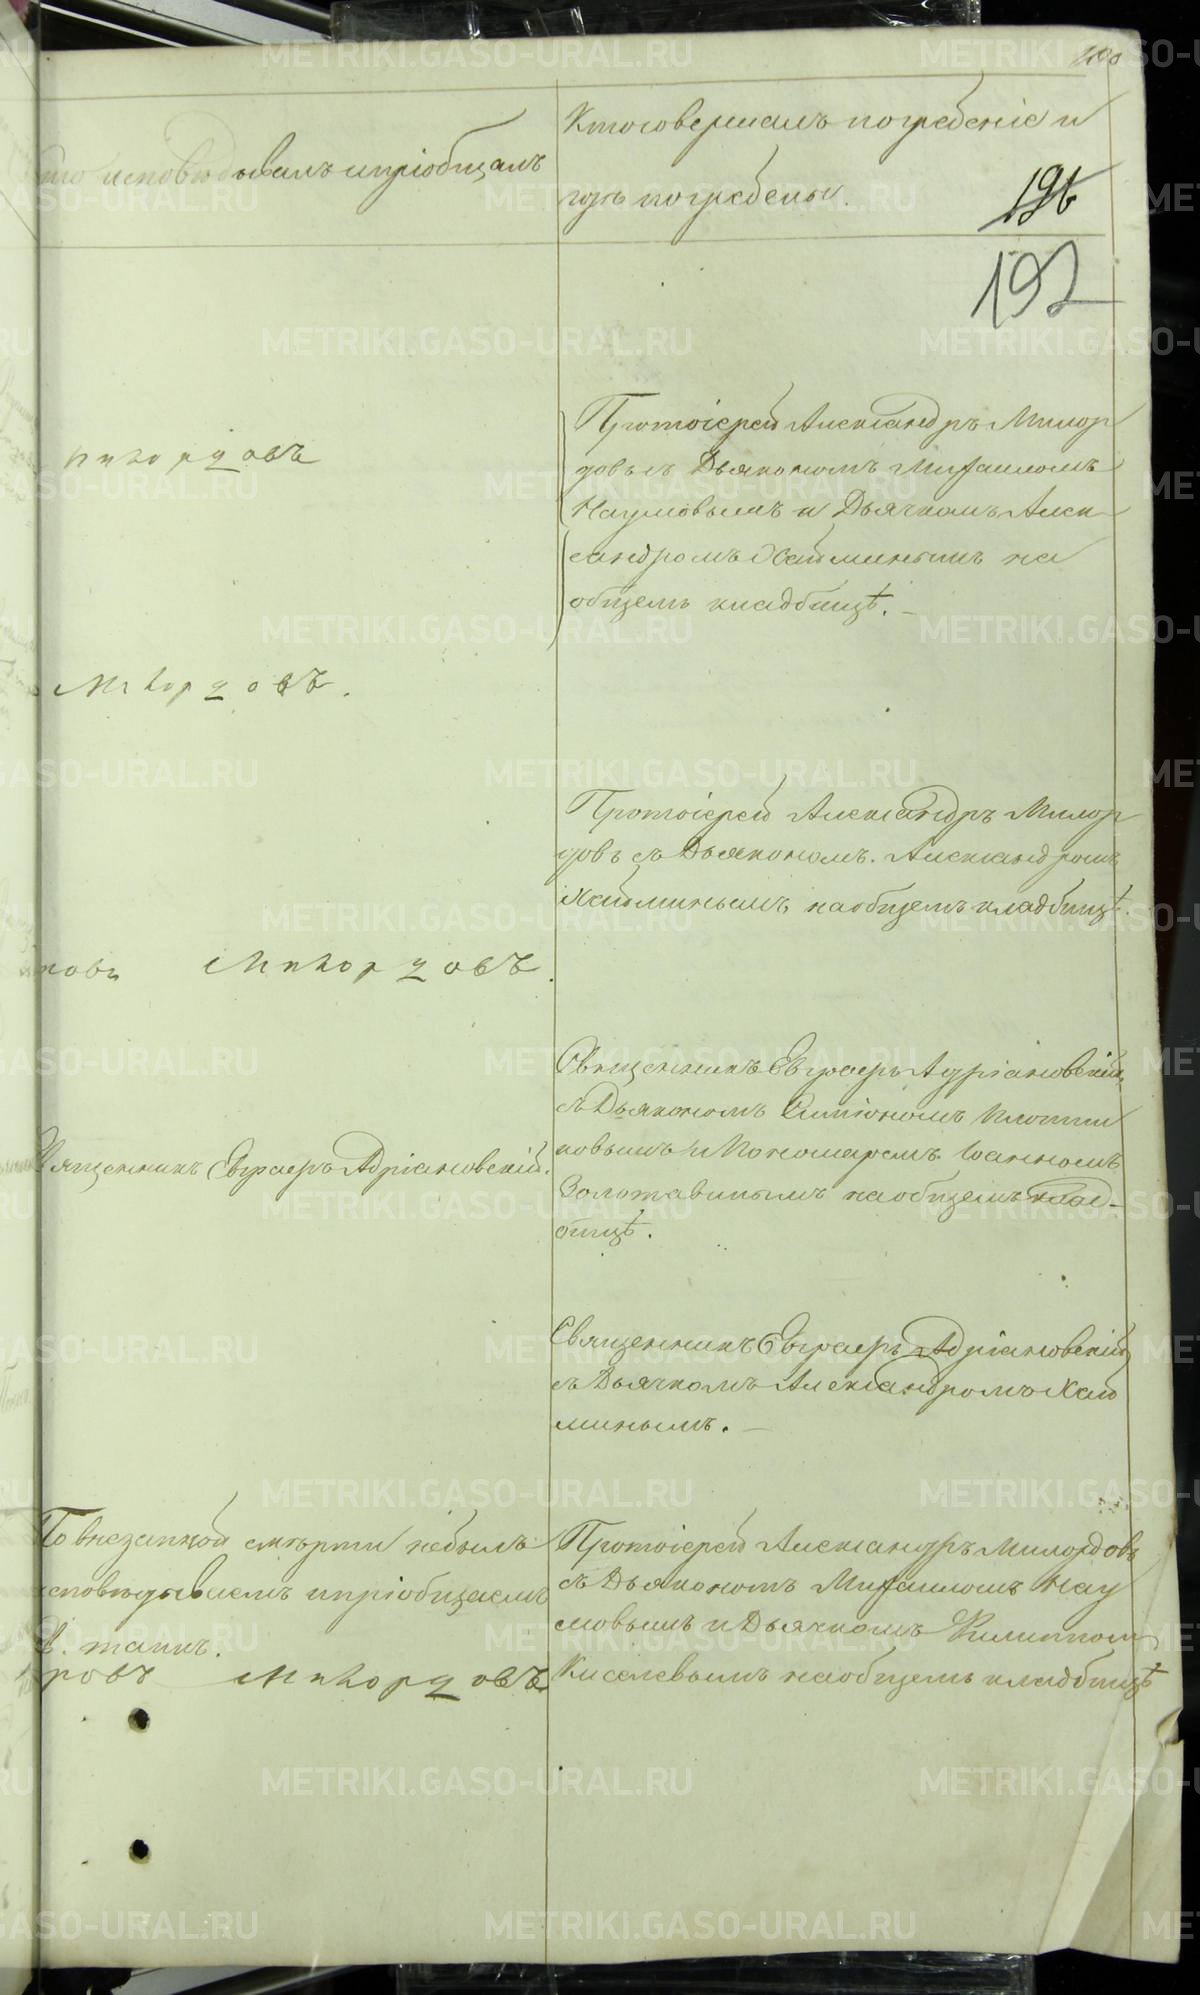 Кто исповедывалъ и пріобщалъ
Кто совершалъ погребеніе и
гдѣ погребены.
196
192
Протоіерей Александръ Милор
довъ съ Дьякономъ Михаиломъ
Наумовымъ и Дьячкомъ Алек
сандромъ Хайминымъ на
общемъ кладбищѣ.
Протоіерей Александръ Милор
довъ съ Дьякономъ Александромъ
Хайминымъ на общемъ кладбищѣ.
Священникъ Евграфъ Адріановскій
съ Дьякономъ Симіономъ Плотни
ковымъ и Пономаремъ Іоанномъ
Золотавинымъ на общемъ клад-
бищѣ.
Священникъ Евграфъ Адріановскій.
Священникъ Евграфъ Адріановскій
съ Дьячкомъ Александромъ Хай
минымъ.
По внезапной смерти небылъ
исповѣдываемъ и пріобщаемъ
Св. таинъ.
Протоіерей Александръ Милордовъ
съ Дьякономъ Михаиломъ Нау
мовымъ и Дьячкомъ Филиппом
Киселевымъ на общемъ кладбищѣ
METRIKI.GASO-URAL.RU